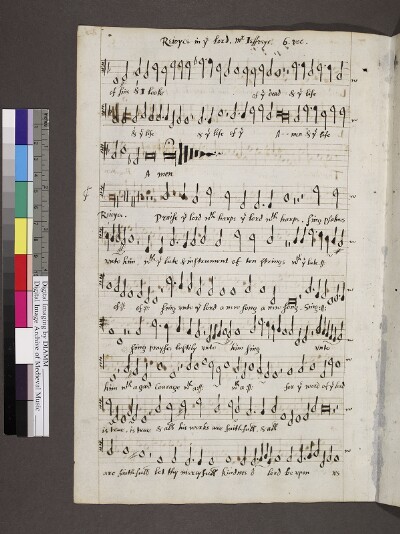 Reioyce in yͤ lord. Mr Jeffreys. 6. voc.
of sins & I looke of yͤ dead & yͤ life
& yͤ life & yͤ life of yͤ A - men & yͤ life
A men
Reioyce. Praise yͤ lord wth harpe yͤ lord wth harpe, sing psalms
vnto him wth yͤ lute & instrument of ten strings wth yͤ lute
sing vnto yͤ lord a new song a new song. sing
sing prayse lustily vnto him sing vnto
him wth a good courage for yͤ word of yͤ lord
is true. is true & all his works are faithfull. & all
are faithfull let thy mercyfull kindnes o lord be vpon vs
Digital Imaging by DIAMM
Digital Image Archive of Medieval Music